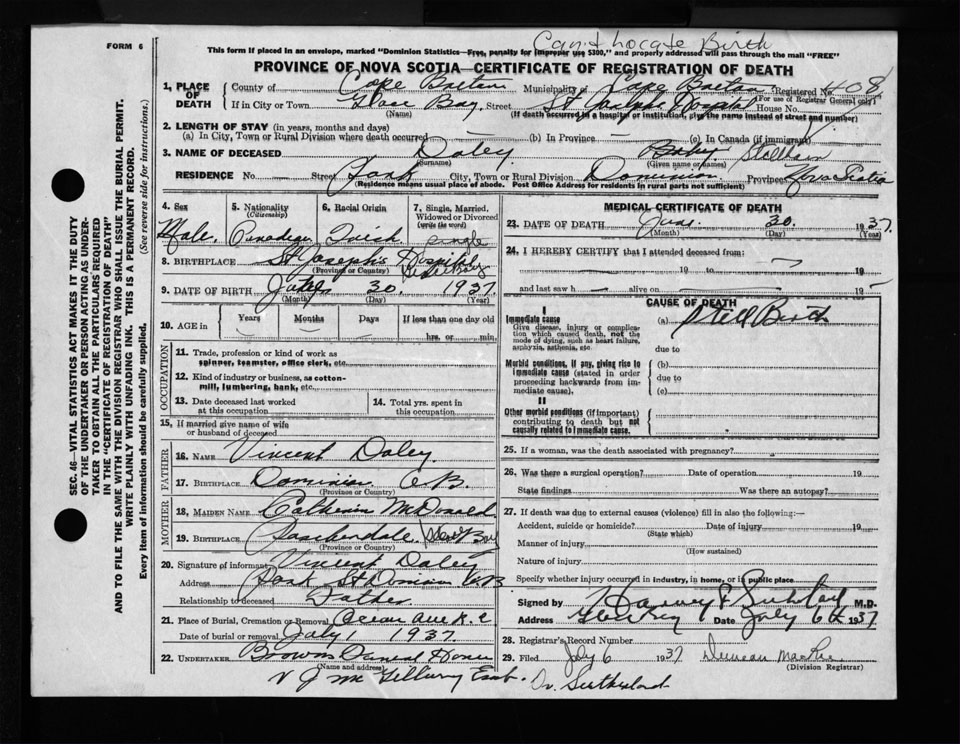 FORM 6
Can't Locate Birth
This form if placed in an envelope, marked "Dominion Statistics—Free, penalty for improper use $300," and properly addressed will pass through the mail "FREE"
PROVINCE OF NOVA SCOTIA—CERTIFICATE OF REGISTRATION OF DEATH
1. PLACE OF DEATH County of Cape Breton Municipality of Cape Breton Registered No. 408
(For use of Registrar General only)
If in City or Town Glace Bay, Street St Josephs Hospital House No.
(Name) (If death occurred in a hospital or institution, give the name instead of street and number)
2. LENGTH OF STAY (in years, months and days)
(a) In City, Town or Rural Division where death occurred — (b) In Province — (c) In Canada (if immigrant)
3. NAME OF DECEASED Daley Baby Stillborn
(Surname) (Given name or names)
RESIDENCE No. — Street Park City, Town or Rural Division Dominion Province Nova Scotia
(Residence means usual place of abode. Post Office Address for residents in rural parts not sufficient)
4. Sex 5. Nationality (Citizenship) 6. Racial Origin 7. Single, Married, Widowed or Divorced (write the word)
Male. Canadian Irish single
8. BIRTHPLACE St Joseph's Hospital Glace Bay
(Province or Country)
9. DATE OF BIRTH 30. 1937.
(Month) (Day) (Year)
10. AGE in Years Months Days If less than one day old
hrs. or min.
OCCUPATION
11. Trade, profession or kind of work as spinner, teamster, office clerk, etc.
12. Kind of industry or business, as cotton-mill, lumbering, bank, etc.
13. Date deceased last worked at this occupation 14. Total yrs. spent in this occupation
15. If married give name of wife or husband of deceased
FATHER
16. NAME Vincent Daley.
17. BIRTHPLACE Dominion C.B.
(Province or Country)
MOTHER
18. MAIDEN NAME Catherine McDonald
19. BIRTHPLACE Passchendale. Glace Bay
(Province or Country)
20. Signature of informant Vincent Daley
Address Park St Dominion C.B
Relationship to deceased Father
21. Place of Burial, Cremation or Removal Ocean Ave R.C
Date of burial or removal July 1 1937.
22. UNDERTAKER Browns
(Name and address)
MEDICAL CERTIFICATE OF DEATH
23. DATE OF DEATH June 30. 1937.
(Month) (Day) (Year)
24. I HEREBY CERTIFY that I attended deceased from:
19 to 19
and last saw h alive on 19
CAUSE OF DEATH
I
Immediate cause
Give disease, injury or complication which caused death, not the mode of dying, such as heart failure, asphyxia, asthenia, etc.
(a) Still Birth
due to
Morbid conditions, if any, giving rise to immediate cause (stated in order proceeding backwards from immediate cause).
(b)
due to
(c)
II
Other morbid conditions (if important) contributing to death but not causally related to immediate cause.
25. If a woman, was the death associated with pregnancy?
26. Was there a surgical operation? Date of operation 19
State findings Was there an autopsy?
27. If death was due to external causes (violence) fill in also the following:—
Accident, suicide or homicide? Date of injury 19
(State which)
Manner of injury
(How sustained)
Nature of injury
Specify whether injury occurred in industry, in home, or in public place
Signed by Harvey F Sutherland M.D.
Address Glace Bay Date July 6th 1937
28. Registrar's Record Number
29. Filed July 6 1937 Duncan
(Division Registrar)
Dr. Sutherland
SEC. 46—VITAL STATISTICS ACT MAKES IT THE DUTY
OF THE UNDERTAKER OR PERSON ACTING AS UNDER-
TAKER TO OBTAIN ALL THE PARTICULARS REQUIRED
IN THE "CERTIFICATE OF REGISTRATION OF DEATH"
AND TO FILE THE SAME WITH THE DIVISION REGISTRAR WHO SHALL ISSUE THE BURIAL PERMIT.
WRITE PLAINLY WITH UNFADING INK. THIS IS A PERMANENT RECORD.
Every item of information should be carefully supplied. (See reverse side for instructions.)